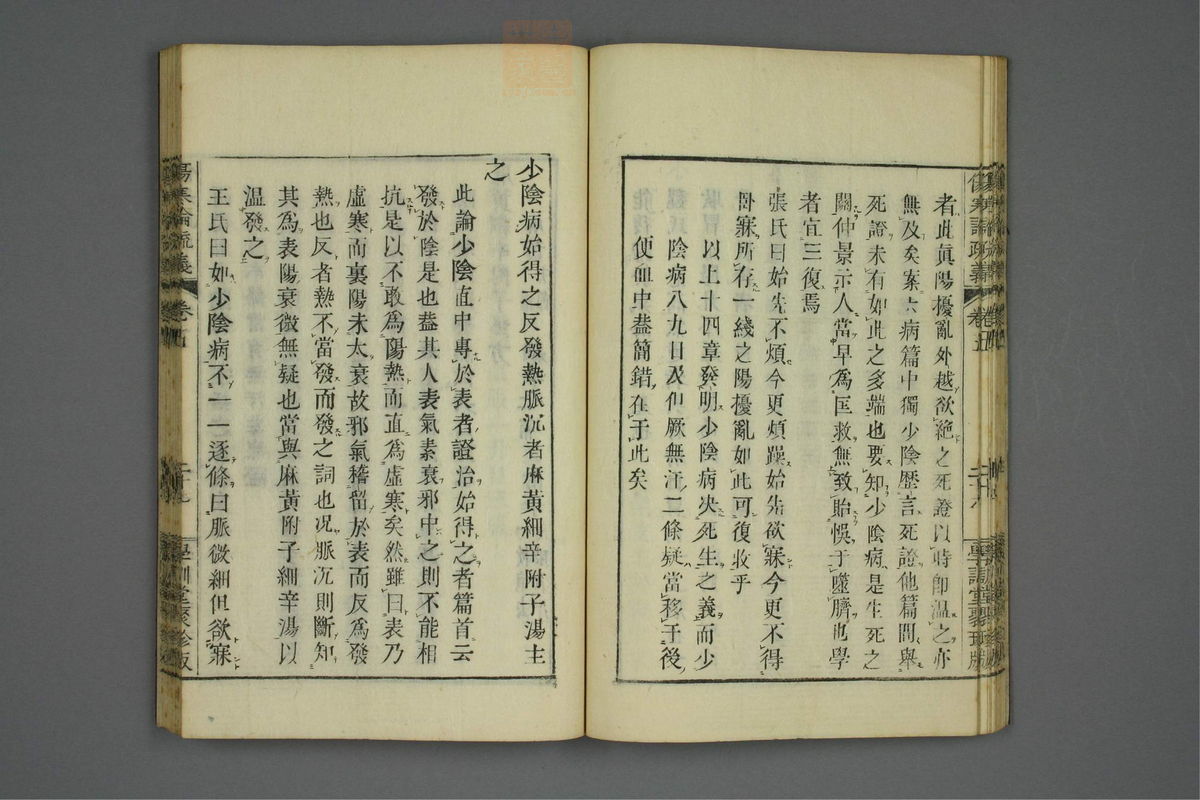 者此眞陽擾亂外越欲絶之死證以時即温之亦
無及矣案六病篇中獨少陰歷言死證他篇間舉
死證未有如此之多端也要知少陰病是生死之
關仲景示人當早爲匡救無致貽悞于噬臍也學
者宜三復焉
張氏曰始先不煩今更煩躁始先欲寐今更不得
臥寐所存一綫之陽擾亂如此可復收乎
以上十四章發明少陰病決死生之義而少
陰病八九日及但厥無汗二條疑當移于後
便血中葢簡錯在于此矣
傷寒論疏義 卷五 二十八 學訓堂聚珍版
少陰病始得之反發熱脈沉者麻黃細辛附子湯主
之
此論少陰直中專於表者證治始得之者篇首云
發於陰是也葢其人表氣素衰邪中之則不能相
抗是以不敢爲陽熱而直爲虛寒矣然雖曰表乃
虛寒而裏陽未太衰故邪氣稽留於表而反爲發
熱也反者熱不當發而發之詞也况脈沉則斷知
其爲表陽衰微無疑也當與麻黃附子細辛湯以
温發之
王氏曰如少陰病不一一逐條曰脈微細但欲寐
傷寒論疏義 卷五 二十九 學訓堂聚珍版